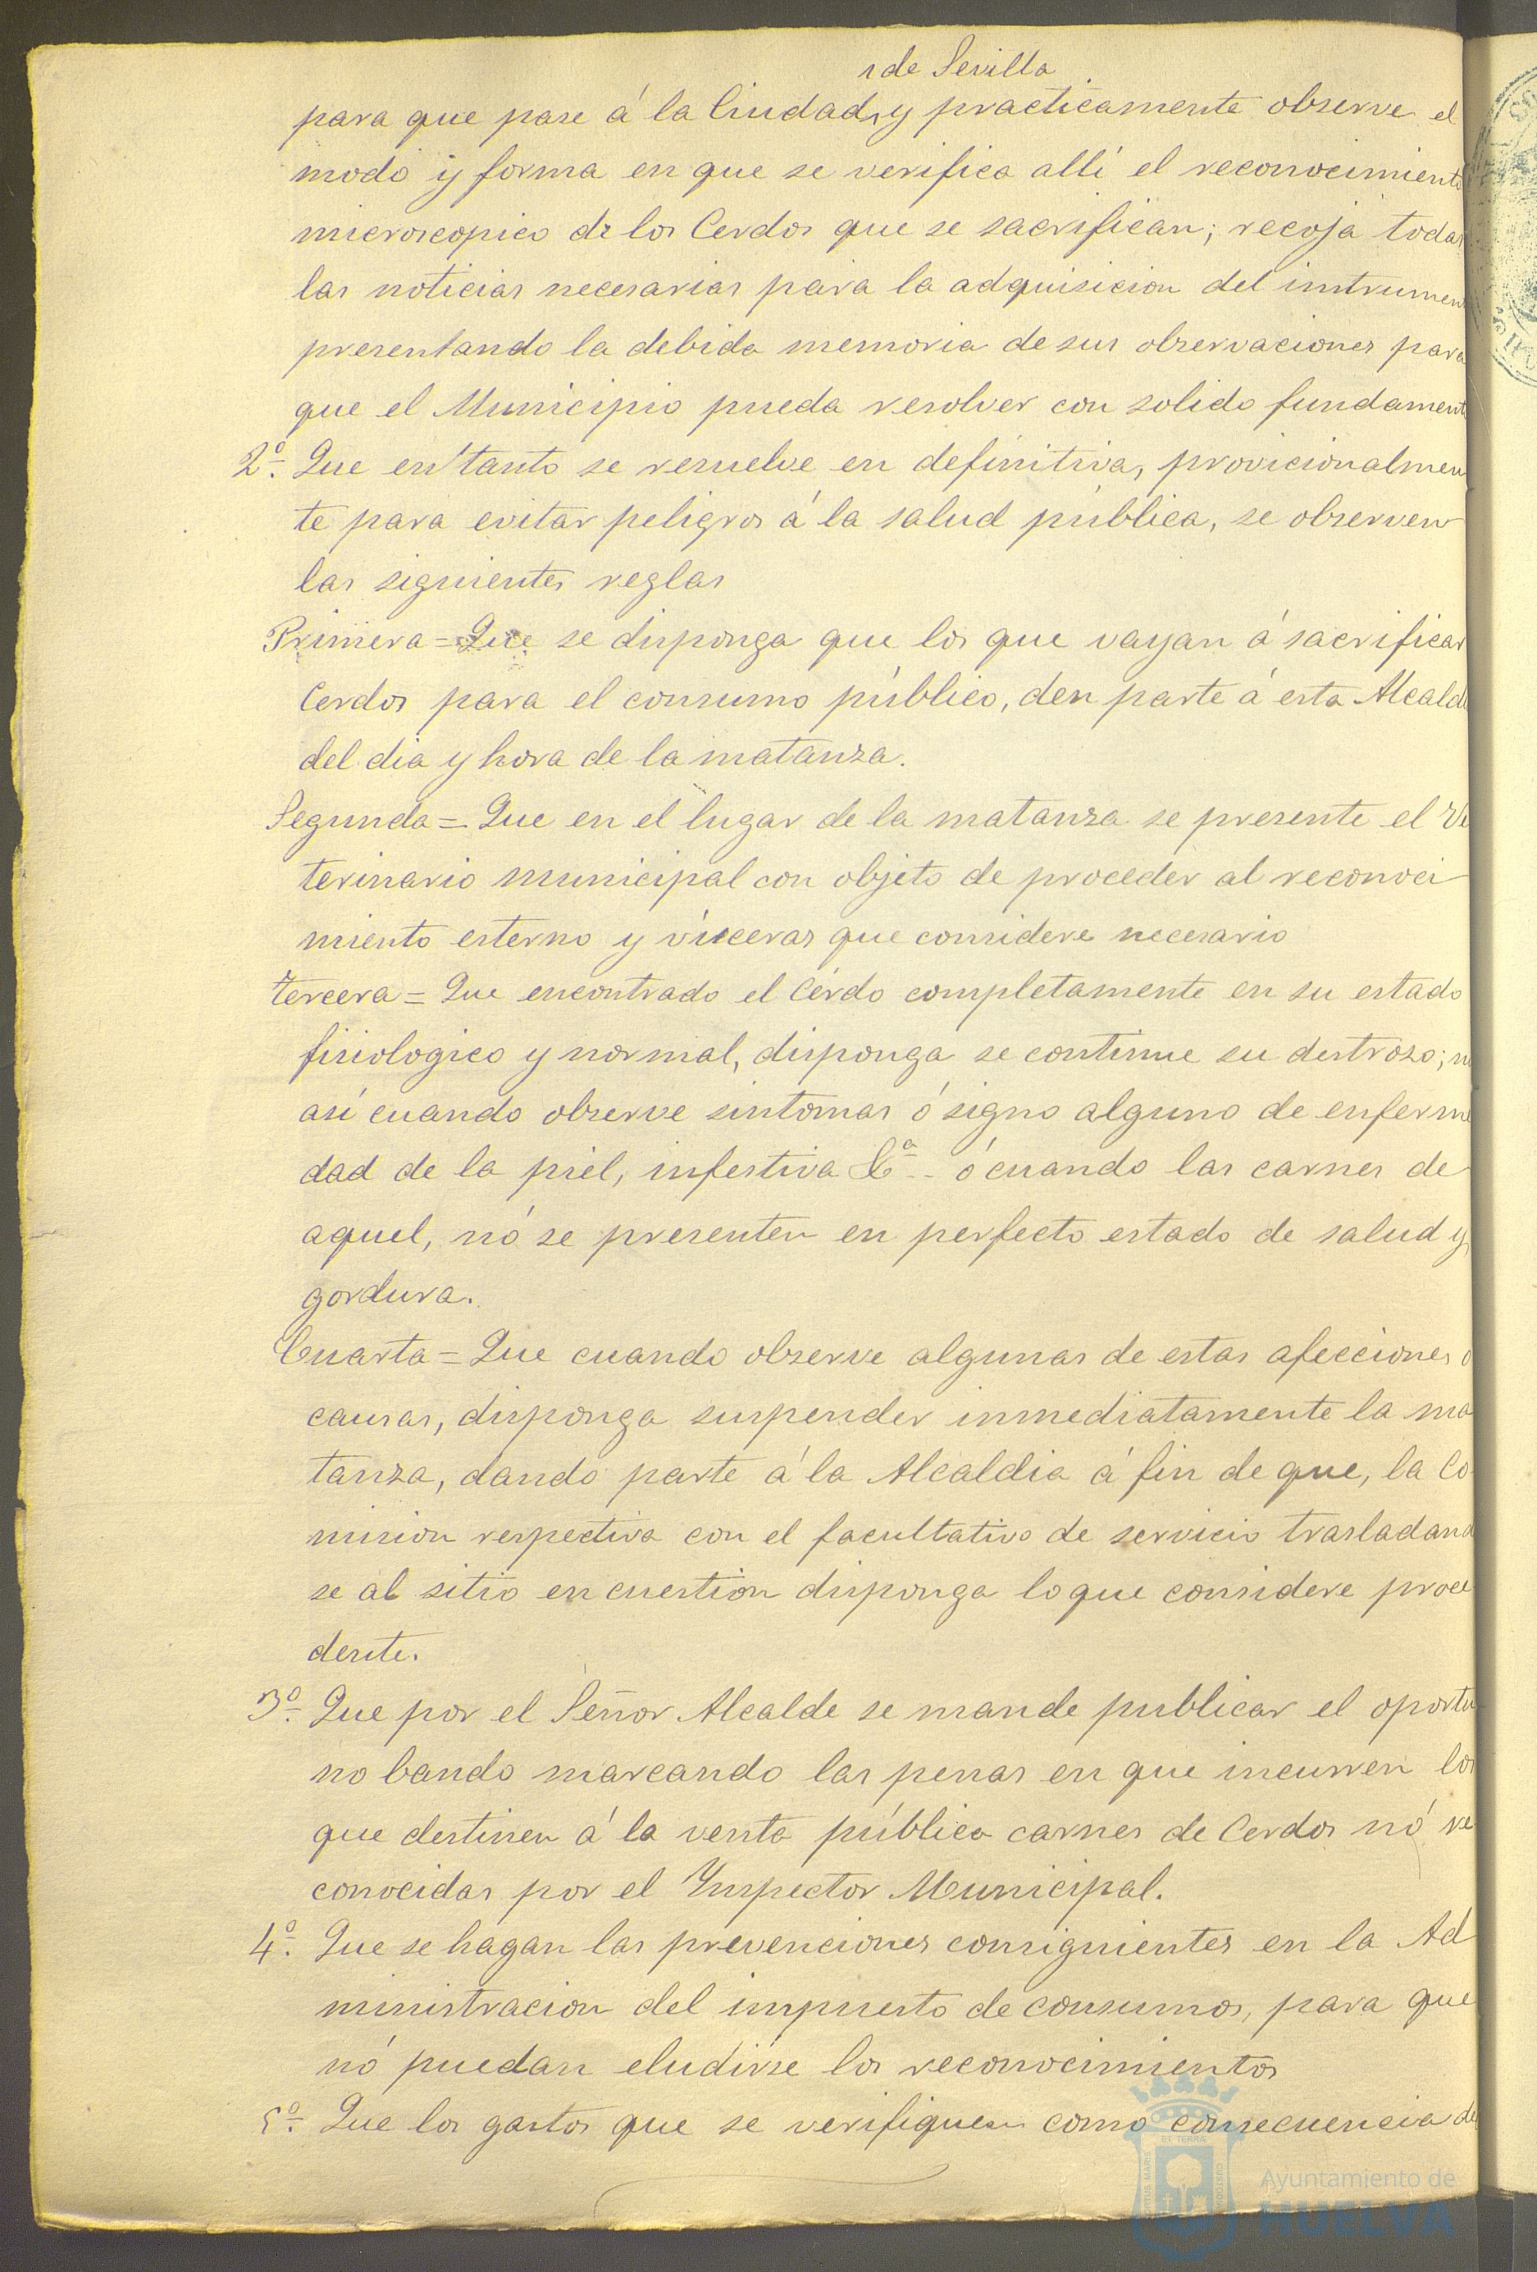 de Sevilla
para que pase á la Ciudad, y practicamente observe el
modo y forma en que se verifica allí el reconocimiento
microscopico de los Cerdos que se sacrifican; recoja todas
las noticias necesarias para la adquisicion del instrumen
presentando la debida memoria de sus observaciones para
que el Municipio pueda resolver con solido fundament
2º. Que en tanto se resuelve en definitiva, provicionalmen
te para evitar peligros á la salud pública, se observen
las siguientes reglas
Primera = Que se disponga que los que vayan á sacrificar
Cerdos para el consumo público, den parte á esta Alcald
del dia y hora de la matanza.
Segunda = Que en el lugar de la matanza se presente el Ve
terinario municipal con objeto de proceder al reconoci
miento esterno y visceras que considere necesario
tercera = Que encontrado el Cerdo completamente en su estado
fisiologico y normal, disponga se continue su destrozo; n
así cuando observe sintomas ó signo alguno de enferme
dad de la piel, infestiva &ª ó cuando las carnes de
aquel, nó se presenten en perfecto estado de salud y
gordura.
Cuarta = Que cuando observe algunas de estas afecciones o
causas, disponga suspender inmediatamente la ma
tanza, dando parte á la Alcaldia á fin de que, la Co
mision respectiva con el facultativo de servicio trasladand
se al sitio en cuestion disponga lo que considere proce
dente.
3º. Que por el Señor Alcalde se mande publicar el oportu
no bando marcando las penas en que incurren los
que destinen á la venta pública carnes de Cerdos nó re
conocidas por el Ynspector Municipal.
4º. Que se hagan las prevenciones consiguientes en la Ad
ministracion del impuesto de consumos, para que
nó puedan eludirse los reconocimientos
5º. Que los gastos que se verifiquen como consecuencia de
Ayuntamiento de
HUELVA